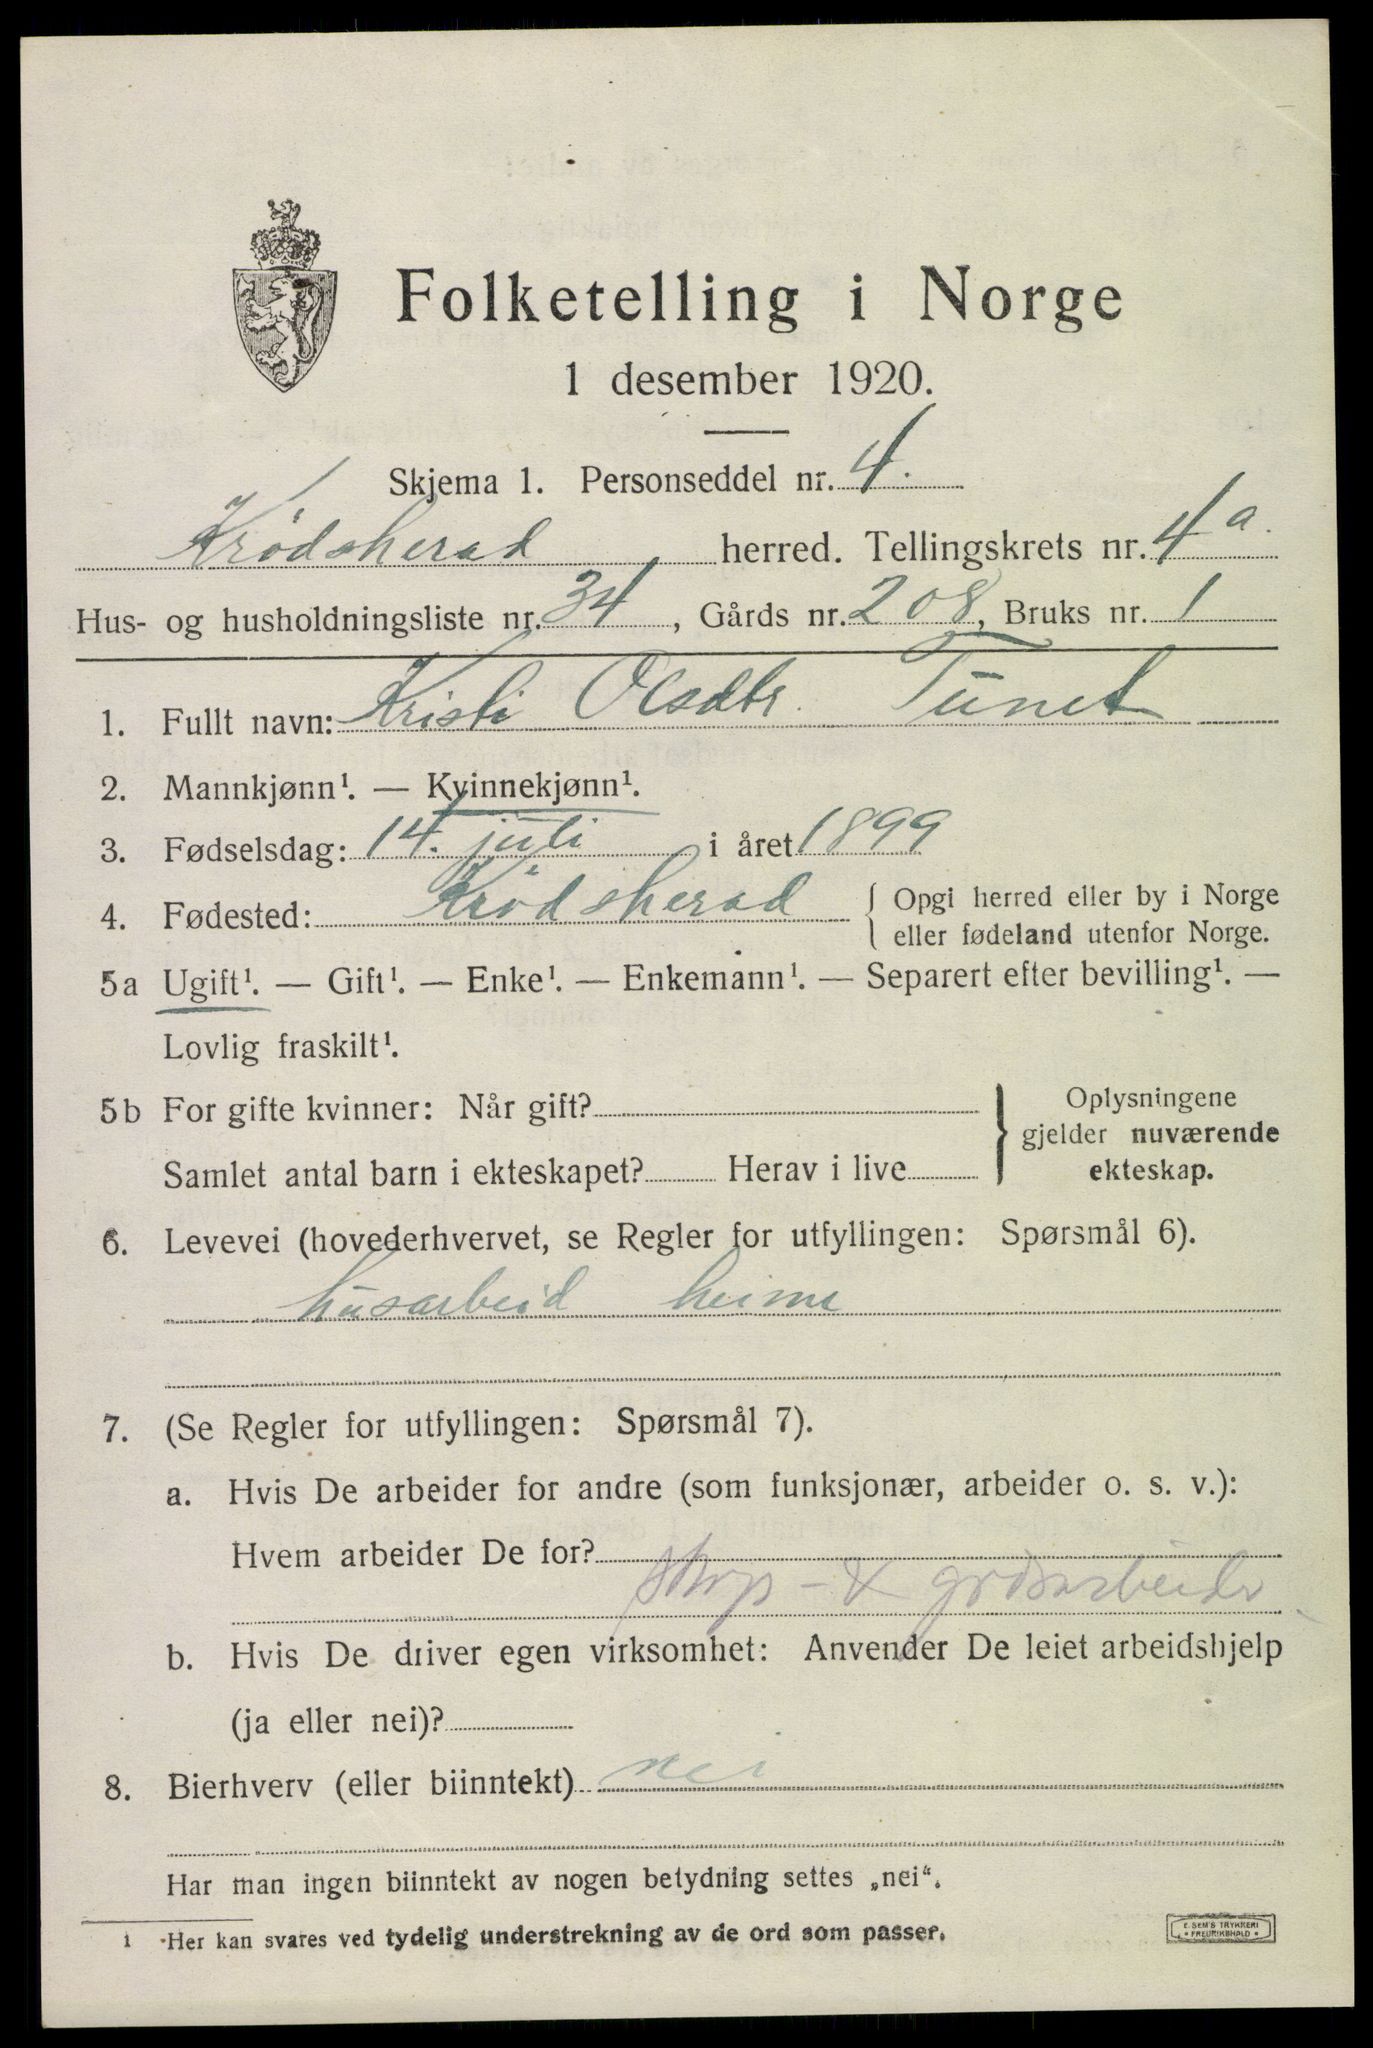 Folketelling i Norge
1 desember 1920.
Skjema 1. Personseddel nr. 4.
Krødsherad herred. Tellingskrets nr. 4a.
Hus- og husholdningsliste nr. 34, Gårds nr. 208, Bruks nr. 1
1. Fullt navn: Kristi Olsdtr. Tunet
2. Mannkjønn¹. — Kvinnekjønn¹.
3. Fødselsdag: 14. juli i året 1899
4. Fødested: Krødsherad { Opgi herred eller by i Norge
eller fødeland utenfor Norge.
5a Ugift¹. — Gift¹. — Enke¹. — Enkemann¹. — Separert efter bevilling¹. —
Lovlig fraskilt¹.
5b For gifte kvinner: Når gift? } Oplysningene
gjelder nuværende
Samlet antal barn i ekteskapet? Herav i live ekteskap.
6. Levevei (hovederhvervet, se Regler for utfyllingen: Spørsmål 6).
husarbeid heime
7. (Se Regler for utfyllingen: Spørsmål 7).
a. Hvis De arbeider for andre (som funksjonær, arbeider o. s. v.):
Hvem arbeider De for?
- & grdsarbeider
b. Hvis De driver egen virksomhet: Anvender De leiet arbeidshjelp
(ja eller nei)?
8. Bierhverv (eller biinntekt) nei
Har man ingen biinntekt av nogen betydning settes „nei“.
1 Her kan svares ved tydelig understrekning av de ord som passer.
E. SEM'S TRYKKERI
* FREDRIKSHALD *